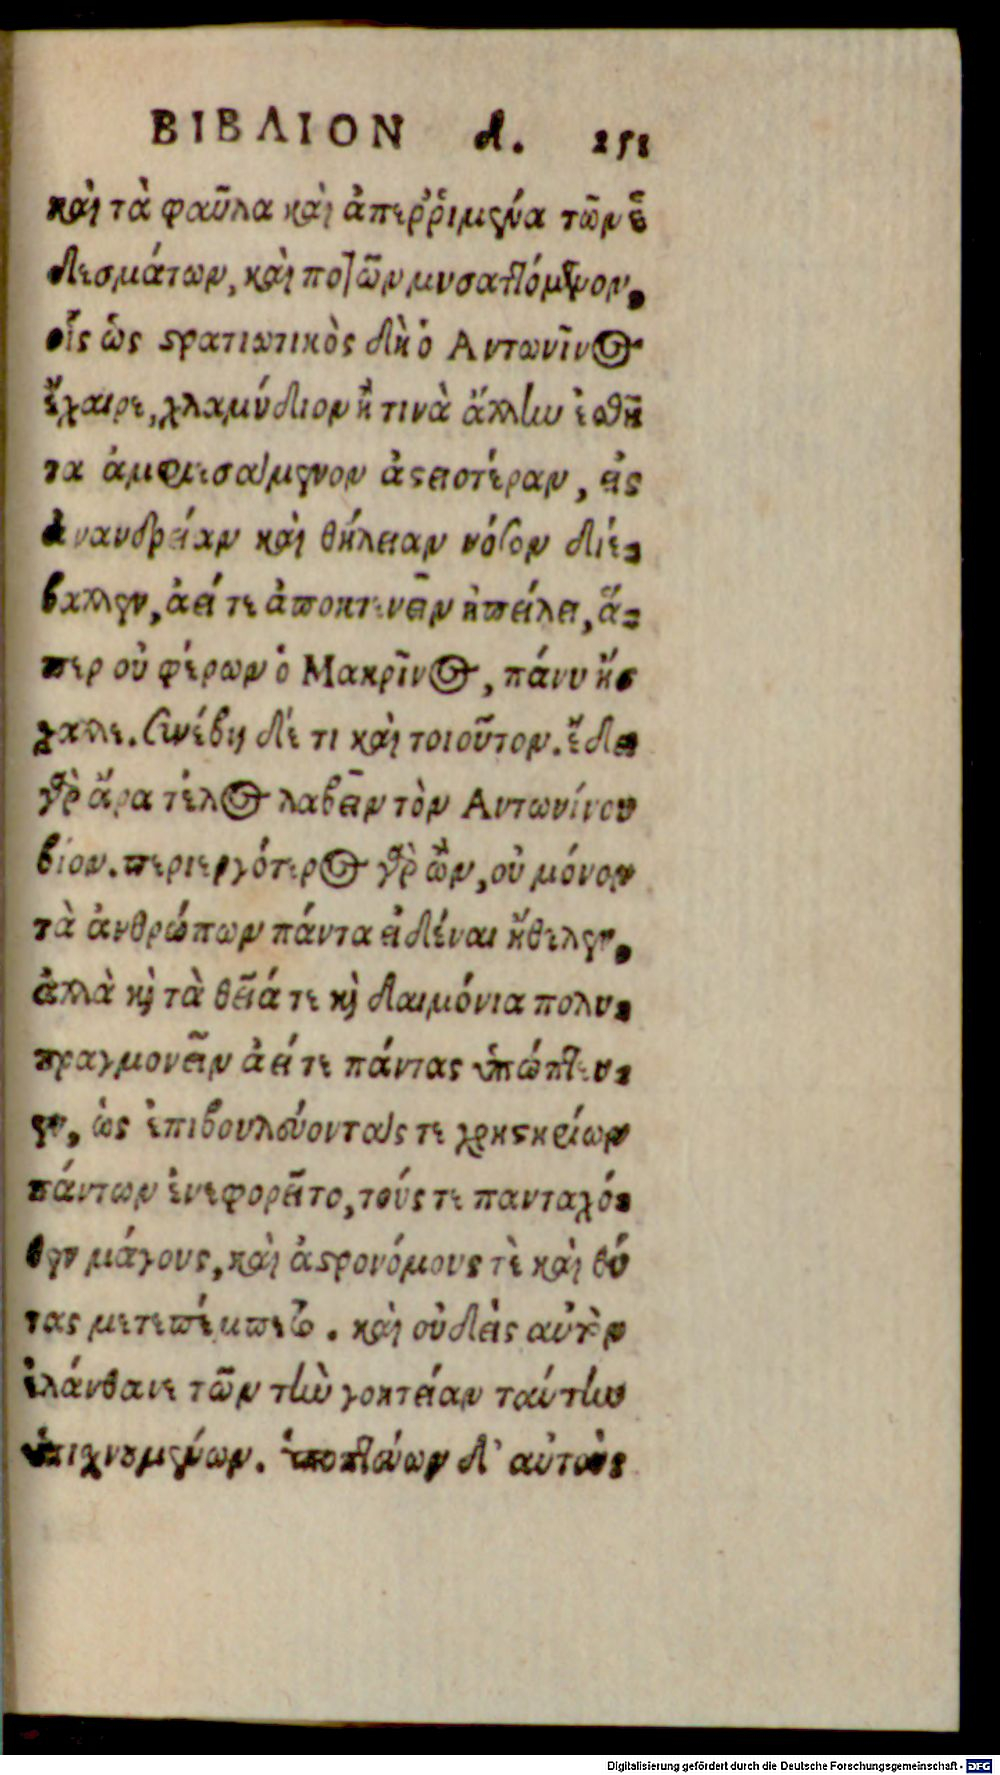 ΒΙΒΛΙΟΝ δ. 251
καὶ τὰ φαῦλα καὶ ἀπεῤῥιμμένα τῶν ἐ
δεσμάτων, καὶ ποτῶν μυσαττόμενον,
οἷς ὡς στρατιωτικὸς δὴ ὁ Αντωνῖνος
ἔχαιρε, χλαμύδιον ἤ τινὰ ἄλλην ἐσθῆ
τα ἀμφιεσάμενον ἀστειοτέραν, εἰς
ἀνανδρείαν καὶ θήλειαν νόσον διέ-
βαλλεν, ἀεί τε ἀποκτενεῖν ἠπείλει, ἅ-
περ οὐ φέρων ὁ Μακρῖνος, πάνυ ἤσ
χαλε. συνέβη δέ τι καὶ τοιοῦτον. ἔδει
γὰρ ἄρα τέλος λαβεῖν τὸν Αντωνίνου
βίον. περιεργότερος γὰρ ὢν, οὐ μόνον
τὰ ἀνθρώπων πάντα εἰδέναι ἤθελεν,
ἀλλὰ καὶ τὰ θεῖά τε καὶ δαιμόνια πολυ-
πραγμονεῖν ἀεί τε πάντας ὑπώπτευ-
εν, ὡς ἐπιβουλεύοντας τε χρηστηρίων
πάντων ἐνεφορεῖτο, τούς τε πανταχό-
θεν μάγους, καὶ ἀστρονόμους τὲ καὶ θύ
τας μετεπέμπετο. καὶ οὐδεὶς αὐτὸν
ἐλάνθανε τῶν τὴν γοητείαν ταύτην
ὑπιχνουμένων. ὑποπτεύων δ' αὐτοὺς
Digitalisierung gefördert durch die Deutsche Forschungsgemeinschaft - DFG